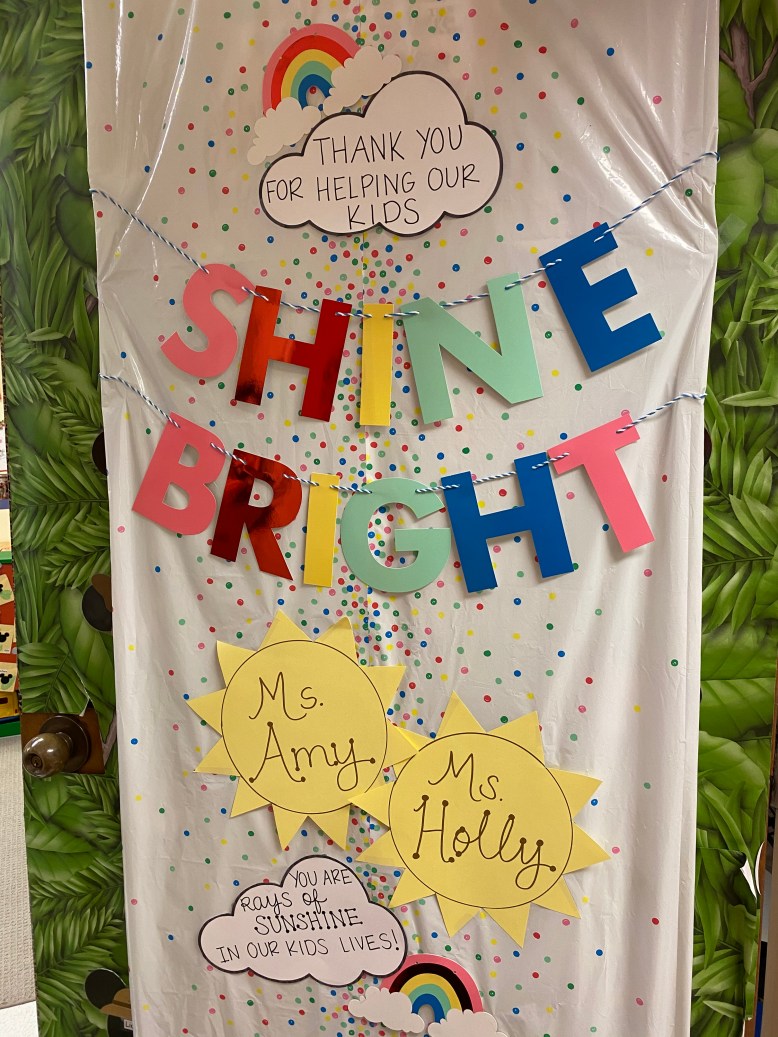 THANK YOU
FOR HELPING OUR
KIDS
SHINE
BRIGHT
Ms.
Amy
Ms.
Holly
YOU ARE
Rays of
SUNSHINE
IN OUR KIDS LIVES!